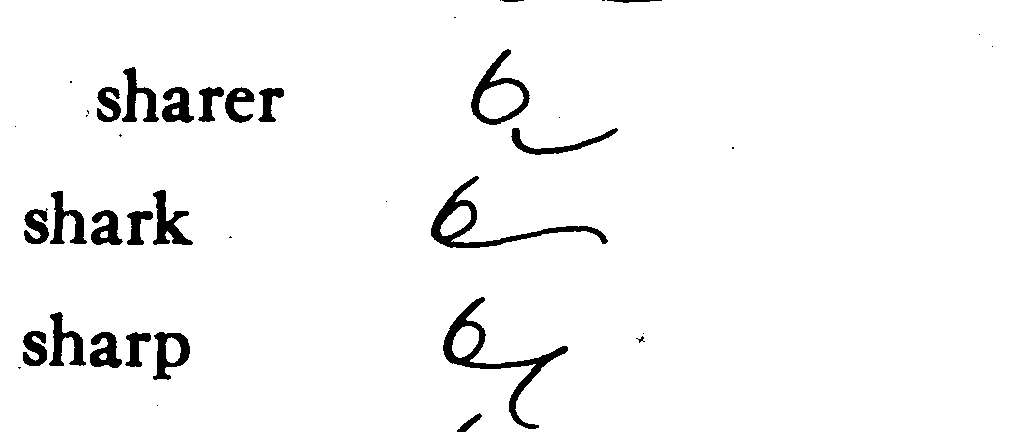 sharer
shark
sharp